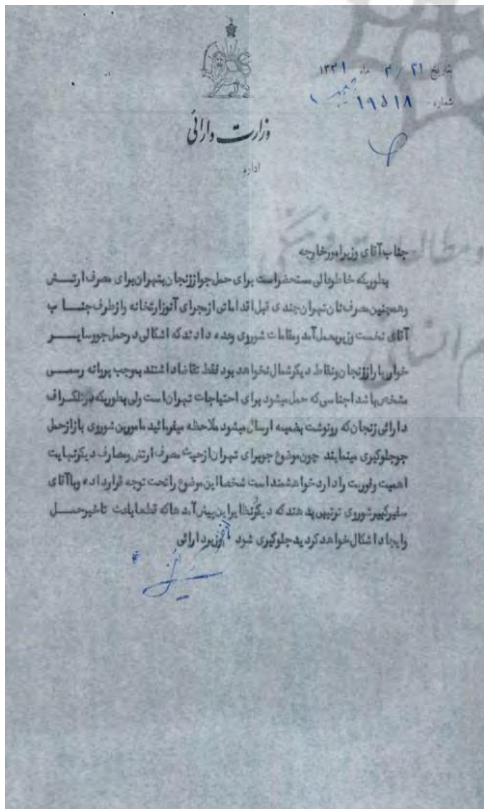 بتاریخ ۲۱ / ۳ ماه ۱۳۲۱
شماره ۱۹۵۱۸
وزارت دارائی
اداره
جناب آقای وزیر امور خارجه
بطوریکه خاطر عالی مستحضر است برای حمل جو از زنجان بتهران برای مصرف ارتش
و همچنین مصرف نان تهران چندی قبل اقداماتی از مجرای آنوزارتخانه و از طرف جناب
آقای نخست وزیر بعمل آمد و مقامات شوروی وعده دادند که اشکالی در حمل جو و سایر
خواربار از زنجان و نقاط دیگر شمال نخواهد بود فقط تقاضا داشتند بموجب پروانه رسمی
مشخص باشد اجناسی که حمل میشود برای احتیاجات تهران است ولی بطوریکه در تلگراف
دارائی زنجان که رونوشت بضمیمه ارسال میشود ملاحظه میفرمائید مامورین شوروی باز از حمل
جو جلوگیری مینمایند چون موضوع جو برای تهران از حیث مصرف ارتش و مصارف دیگر نهایت
اهمیت و فوریت را دارد خواهشمند است شخصا این موضوع را تحت توجه قرار داده و با آقای
سفیر کبیر شوروی ترتیبی بدهند که دیگر نظایر این پیش آمدها که قطعا باعث تاخیر حمل
و ایجاد اشکال خواهد کردید جلوگیری شود وزیر دارائی
مطالعات فرهنگی
م انسانی